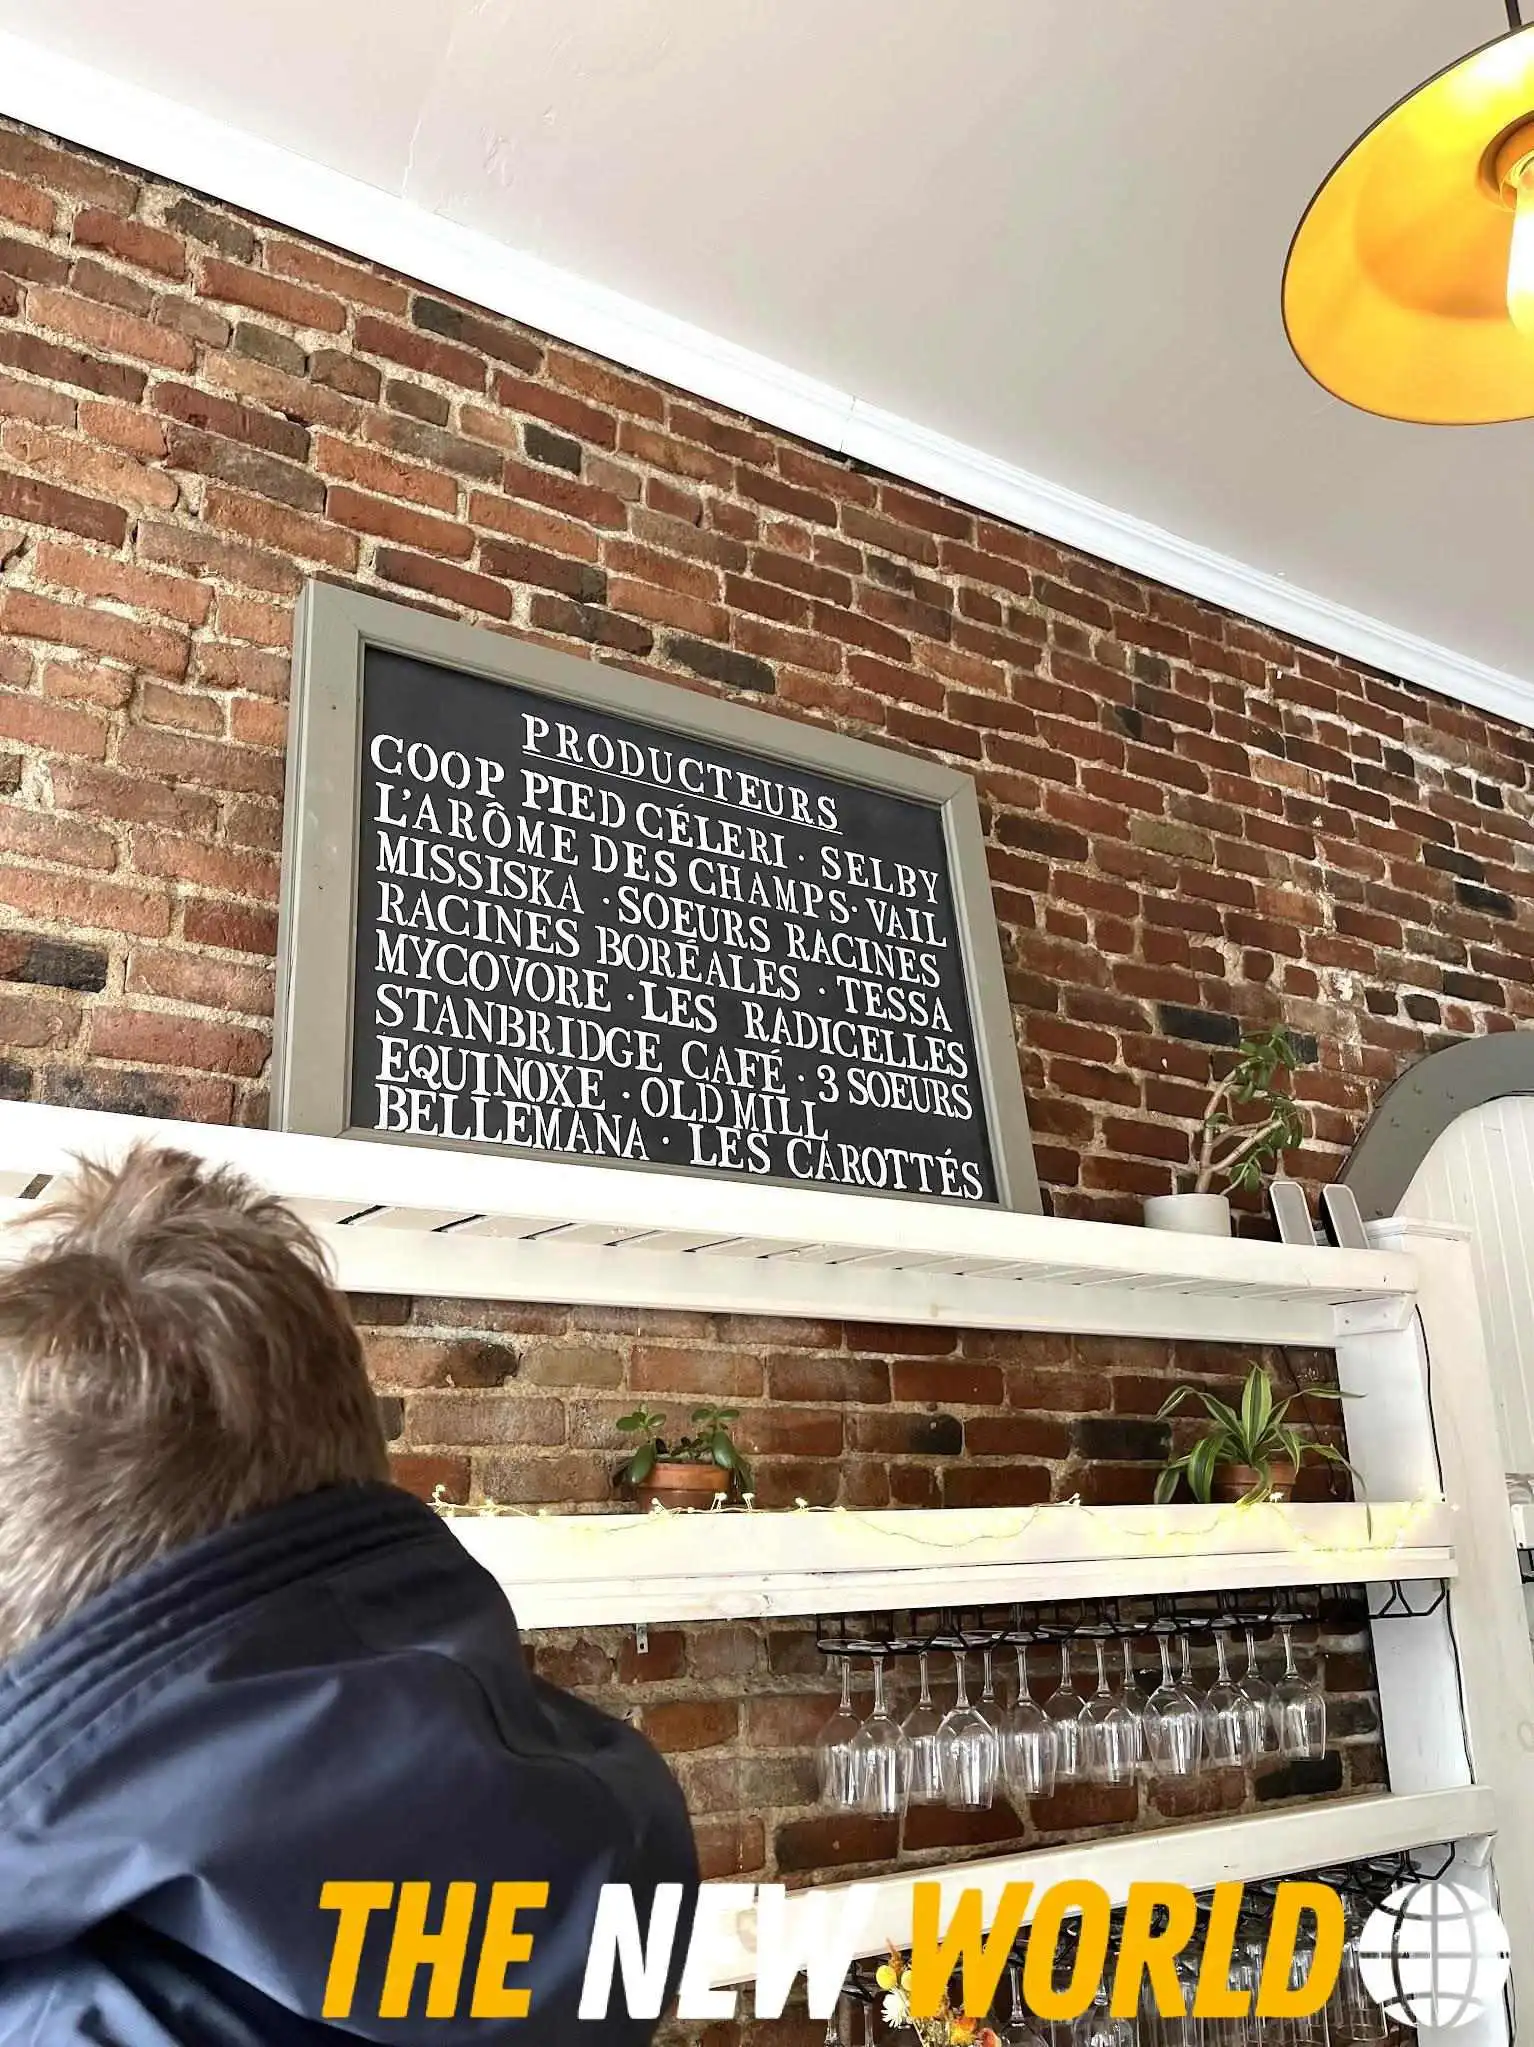 PRODUCTEURS
COOP PIED CÉLERI · SELBY
L'ARÔME DES CHAMPS · VAIL
MISSISKA · SOEURS RACINES
RACINES BORÉALES · TESSA
MYCOVORE · LES RADICELLES
STANBRIDGE CAFÉ · 3 SOEURS
EQUINOXE · OLD MILL
BELLEMANA · LES CAROTTÉS
THE NEW WORLD